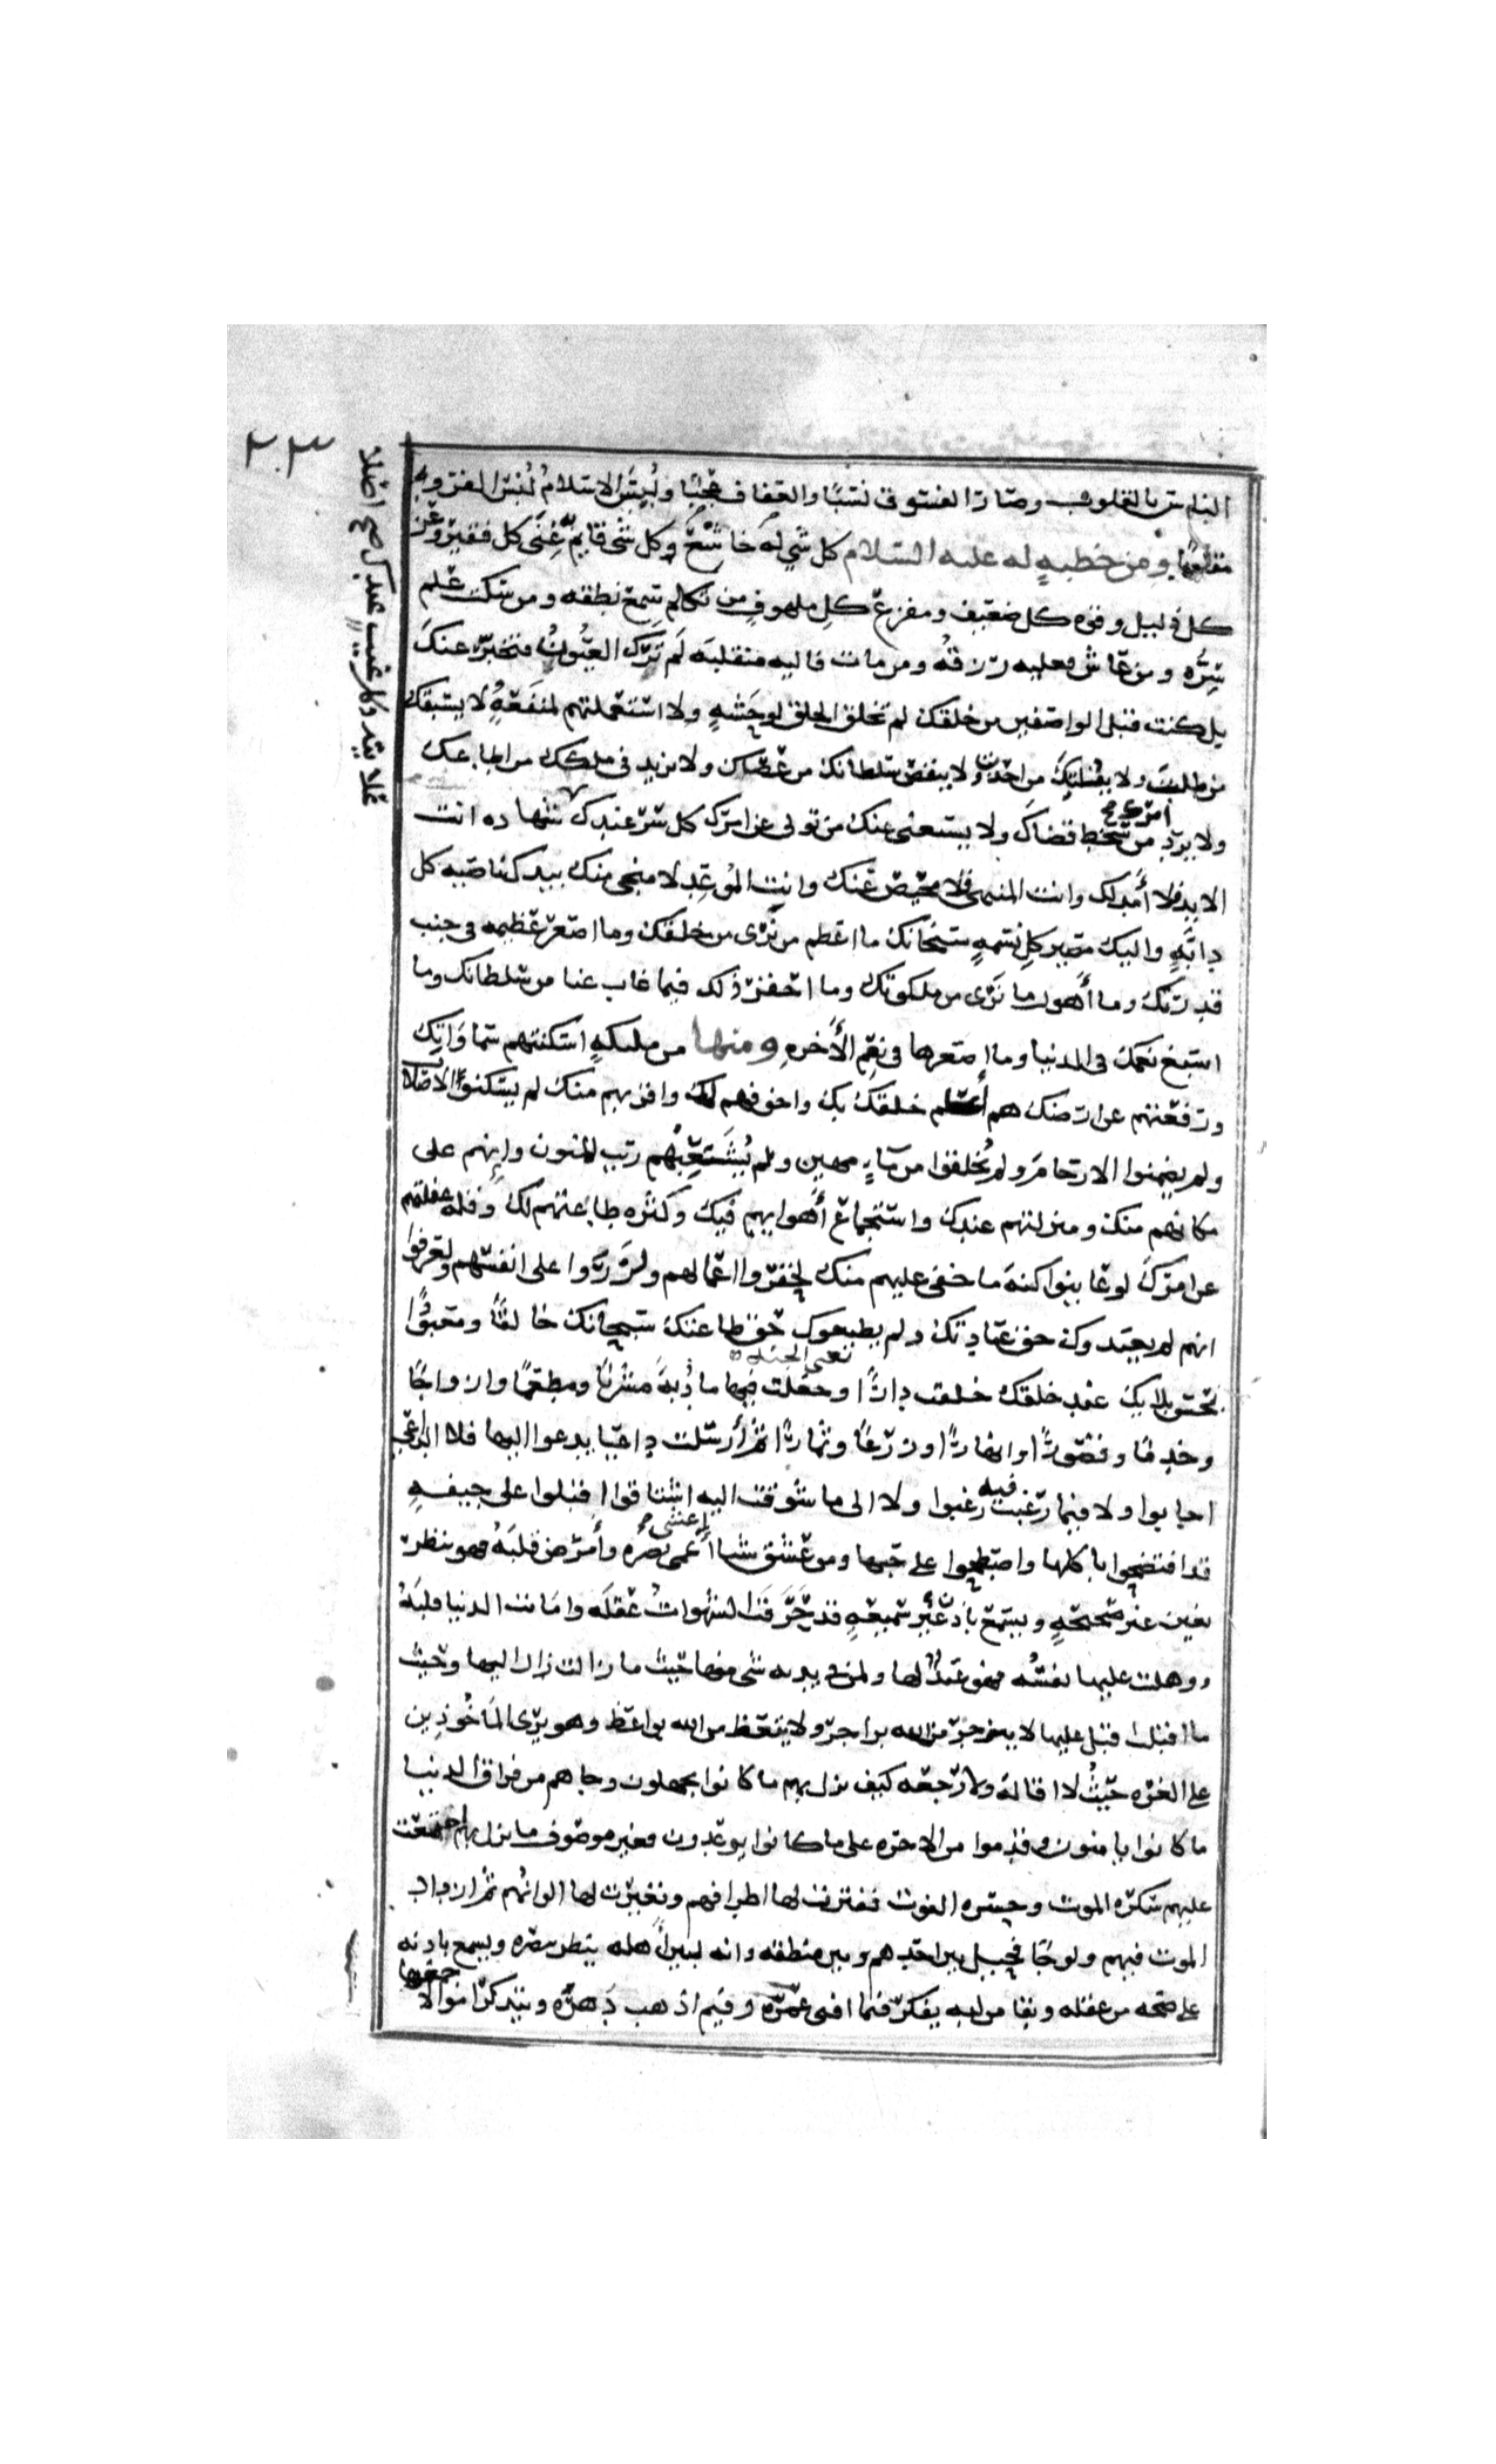 الناس بالقلوب وصار الفسوق نسبًا والعفاف عجبًا ولُبِسَ الاسلامُ لُبْسَ الفرو
مقلوبًا ومن خطبةٍ له عليه السلام كل شيء له خاشعٌ وكل شى قايمٌ به غِنَى كل فقير وعز
كل ذليل وقوه كل ضعيف ومفزع كلِ ملهوفٍ من تكلم سمع نطقه ومن سكت علم
سِرَّه ومن عاش فعليه رزقُه ومن مات فاليه منقلبَه لَم تَرَك العيُونُ فتخبرَ عنكَ
بل كنت قبل الواصفين من خلقك لم تخلق الخلق لوحشةٍ ولا استعملتهم لمنفعةٍ لا يسبقك
من طلبتَ ولا يفلتك من اخذت ولا ينقص سلطانك من عصاك ولا يزيد فى ملكك من اطاعك
ولا يرد امرك من سخط قضاك ولا يستغنى عنك من تولى عن امرك كل سر عندك
الابد فلا أمدلك وانت المنتهى فلا محيص عنك وانت الموعد لا منجى منك بيدك ناصيه كل
دابّةٍ واليك مصير كلِ نسمةٍ سبحانك ما اعظم من نرى من خلقك وما اصغر عظيمه فى جنب
قدرتك وما أهول ما نرى من ملكوتك وما احقر ذلك فيما غاب عنا من سلطانك وما
اسبغ نعمك فى الدنيا وما اصغرها فى نِعَم الأخرهِ ومنها من مليكهٍ اسكنتهم سماواتِك
ورفعتهم عن ارضك هم أعلم خلقك بك واخوفهم لك واقربهم منك لم يسكنوا الاصلاب
ولم يضمنوا الارحام ولم يُخلقوا من ماءٍ مهين ولم يتشعبهم ريب المنون وانهم على
مكانهم منك ومنزلتهم عندك واستجماع أهوايهم فيك وكثره طاعتهم لك وقله غفلتهم
عن امرك لو عاينوا كنهَ ما خفى عليهم منك لحقّروا اعمالهم ولزَرَوا على انفسهم ولعرفوا
انهم لم يعبدوك حق عبادتك ولم يطيعوك حق طاعتك سبحانك خالقًا ومعبودًا
بحسن بلايك عند خلقك خلقت دارًا وجعلت فيها مادُبَةً مشربًا ومطعمًا وازواجًا
وخدمًا وقصورًا وانهارًا وزرعًا وثمارًا ثم أرسلت داعيا يدعوا اليها فلا الداعى
اجابوا ولا فيما رغبت فيه رغبوا ولا الى ما شوقت اليه اشتاقوا اقبلوا على جيفهٍ
قد افتضحوا باكلها واصطلحوا على حبها ومن عشق شيا أعمى بصره وأمرض قلبَهُ فهو ينظر
بعين غير صحيحهٍ ويسمع باذن غير سميعهٍ قد خرقت الشهوات عقلَه واماتت الدنيا قلبَهُ
ووهلت عليها نفسُه فهو عبدٌ لها ولمن فى يديه شى منها حيث ما زالت زال اليها وحيث
ما اقبلت اقبل عليها لا ينزجر من الله بزاجر ولا يتعظ من الله بواعظ وهو يرى المأخوذِين
على الغره حيثُ لا اقالة ولا رجعه كيف نزل بهم ما كانوا يجهلون وجاهم من فراق الدنيا
ما كانوا يامنون وقدموا من الاخره على ما كانوا يوعدون فغير موصوف ما نزل بهم اجتمعت
عليهم سكره الموت وحسره الفوت ففترت لها اطرافهم وتغيرت لها الوانُهم ثم ازداد
الموت فيهم ولوجًا فحيل بين احدهم وبين منطقه وانه لبين أهله ينظر ببصره ويسمع باذنه
على صحه من عقله وبقا من لبه يفكر فيما افنى عمره وفيم اذهب دَهرَه ويتذكر اموالا جمعها
٢٠٣